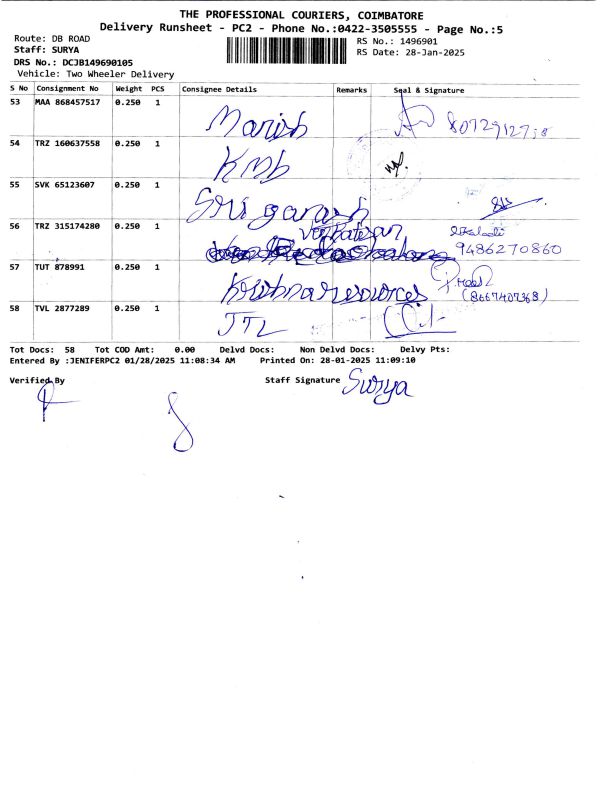 THE PROFESSIONAL COURIERS, COIMBATORE
Delivery Runsheet - PC2 - Phone No.:0422-3505555 - Page No.:5
Route: DB ROAD
RS No.: 1496901
Staff: SURYA
RS Date: 28-Jan-2025
DRS No.: DCJB149690105
Vehicle: Two Wheeler Delivery
S No Consignment No Weight PCS Consignee Details Remarks Seal & Signature
53 MAA 868457517 0.250 1 Marish
54 TRZ 160637558 0.250 1 KMb
55 SVK 65123607 0.250 1 Sri ganash
56 TRZ 315174280 0.250 1 Venkatesan 9486270860
57 TUT 878991 0.250 1 Krishna resources (8667407368)
58 TVL 2877289 0.250 1 JTL
Tot Docs: 58 Tot COD Amt: 0.00 Delvd Docs: Non Delvd Docs: Delvy Pts:
Entered By :JENIFERPC2 01/28/2025 11:08:34 AM Printed On: 28-01-2025 11:09:10
Verified By Staff Signature Surya